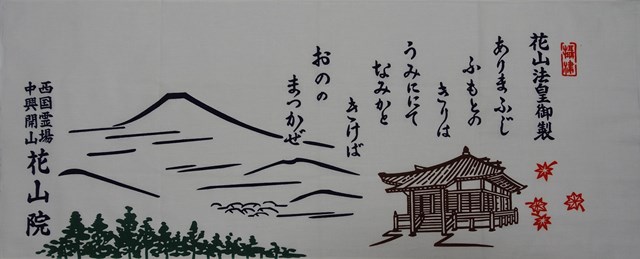 花山法皇御製
ありまふじ
ふもとの
きりは
うみににて
なみかと
きけば
おのの
まつかぜ
西国霊場
中興開山
花山院